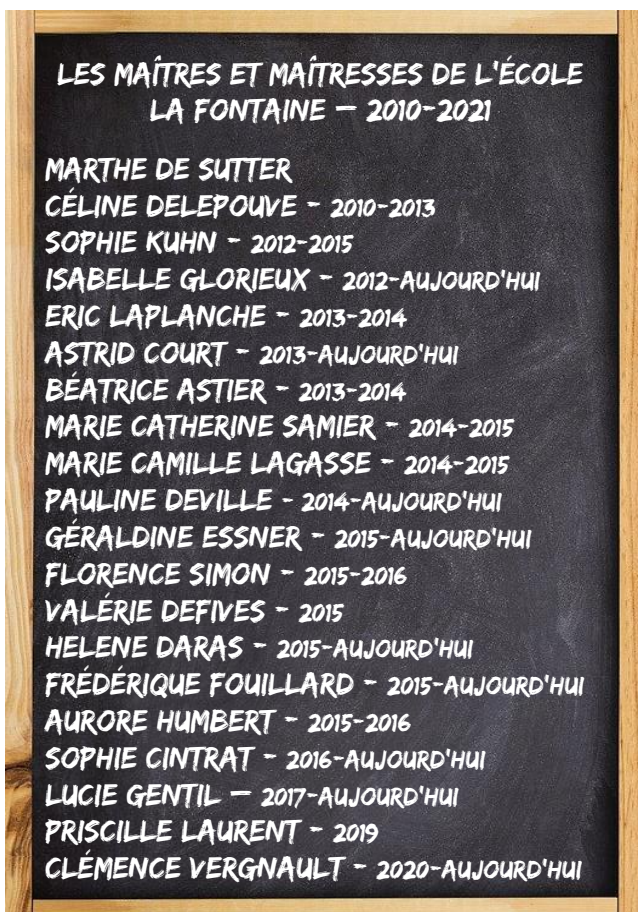 LES MAÎTRES ET MAÎTRESSES DE L'ÉCOLE
LA FONTAINE – 2010-2021
MARTHE DE SUTTER
CÉLINE DELEPOUVE - 2010-2013
SOPHIE KUHN - 2012-2015
ISABELLE GLORIEUX - 2012-AUJOURD'HUI
ERIC LAPLANCHE - 2013-2014
ASTRID COURT - 2013-AUJOURD'HUI
BÉATRICE ASTIER - 2013-2014
MARIE CATHERINE SAMIER - 2014-2015
MARIE CAMILLE LAGASSE - 2014-2015
PAULINE DEVILLE - 2014-AUJOURD'HUI
GÉRALDINE ESSNER - 2015-AUJOURD'HUI
FLORENCE SIMON - 2015-2016
VALÉRIE DEFIVES - 2015
HELENE DARAS - 2015-AUJOURD'HUI
FRÉDÉRIQUE FOUILLARD - 2015-AUJOURD'HUI
AURORE HUMBERT - 2015-2016
SOPHIE CINTRAT - 2016-AUJOURD'HUI
LUCIE GENTIL – 2017-AUJOURD'HUI
PRISCILLE LAURENT - 2019
CLÉMENCE VERGNAULT - 2020-AUJOURD'HUI